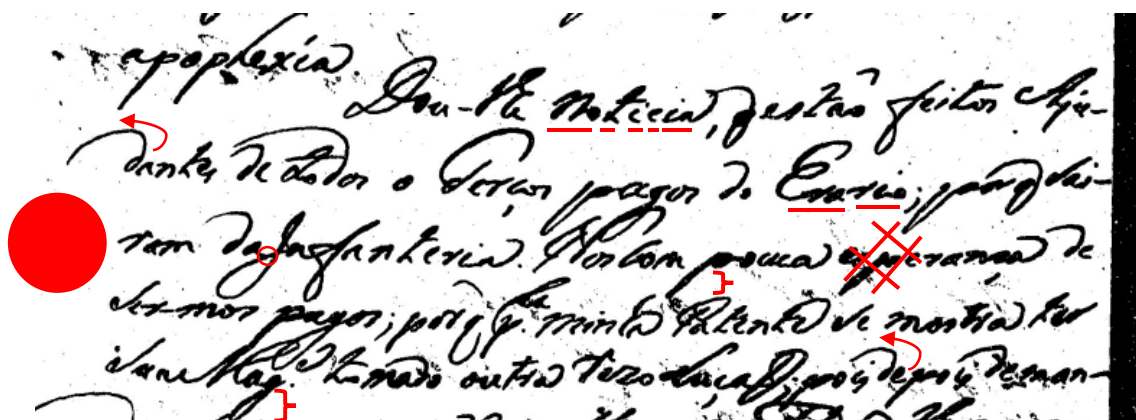 apoplexia.
Dou-lhe noticia, q̃ estaõ feitos Aju-
dantes de todos o Terços pagos do Erario; porq̃ sai-
ram da Infanteria. Nos com pouca esperança de
ser-mos pagos; porq̃ p.la minha Patente se mostra ter
Sua Mag.e tomado outra rezoluçaõ; pois depois de man-